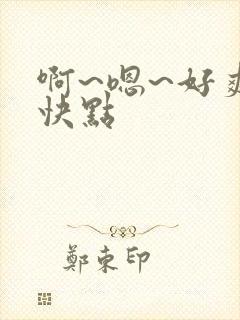 啊~嗯~好爽
快點
鄭東印